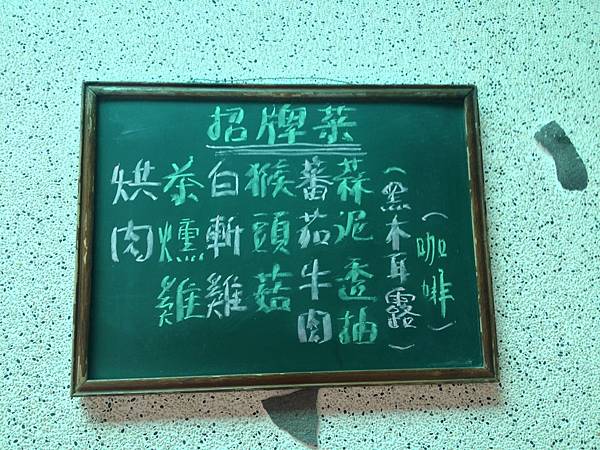 招牌菜
(咖啡)
(黑木耳露)
蒜泥透抽
蕃茄牛肉
猴頭菇
白斬雞
茶燻雞
烘肉